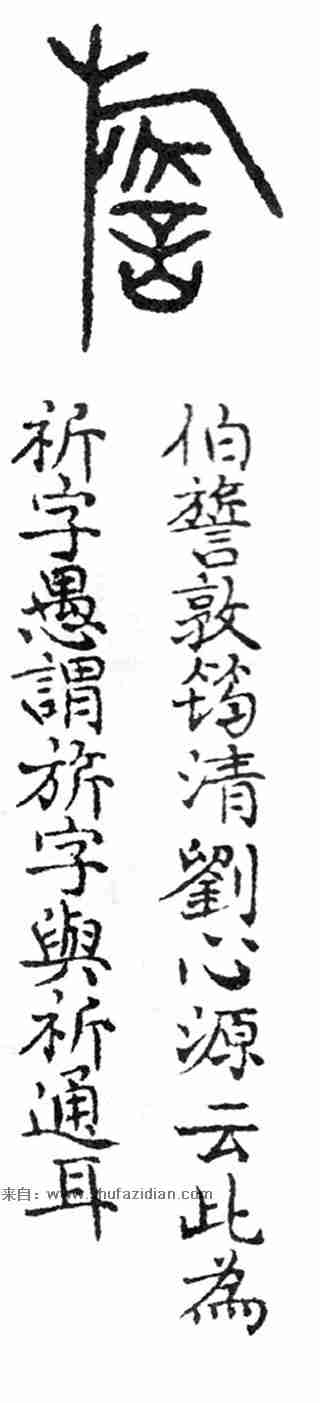 伯敦筠清劉心源云此為
祈字愚謂旂字與祈通耳
来自：www.shufazidian.com